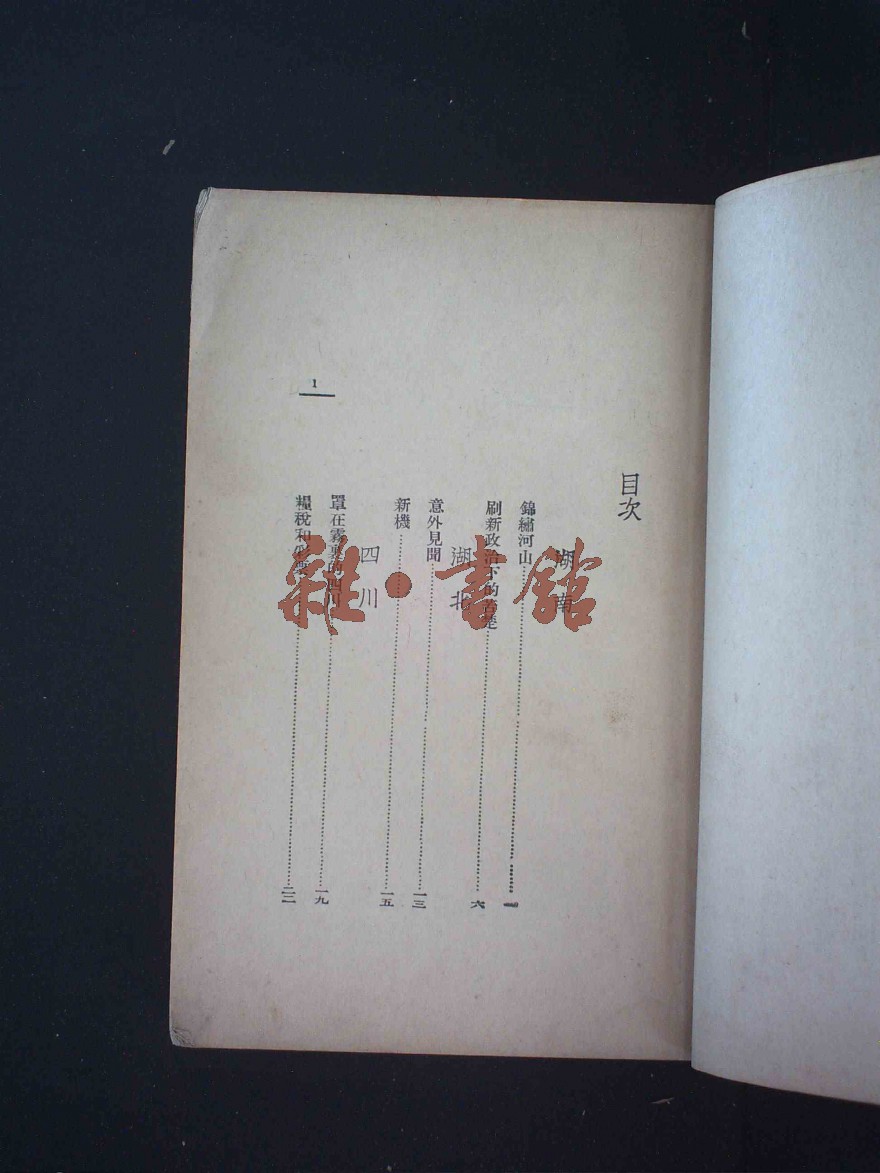 目次
湖南
錦繡河山……一
刷新政治下的苦楚……六
湖北
意外見聞……一三
新機……一五
四川
罩在霧裏的四川……一九
糧稅和……二二
1
雜·書館